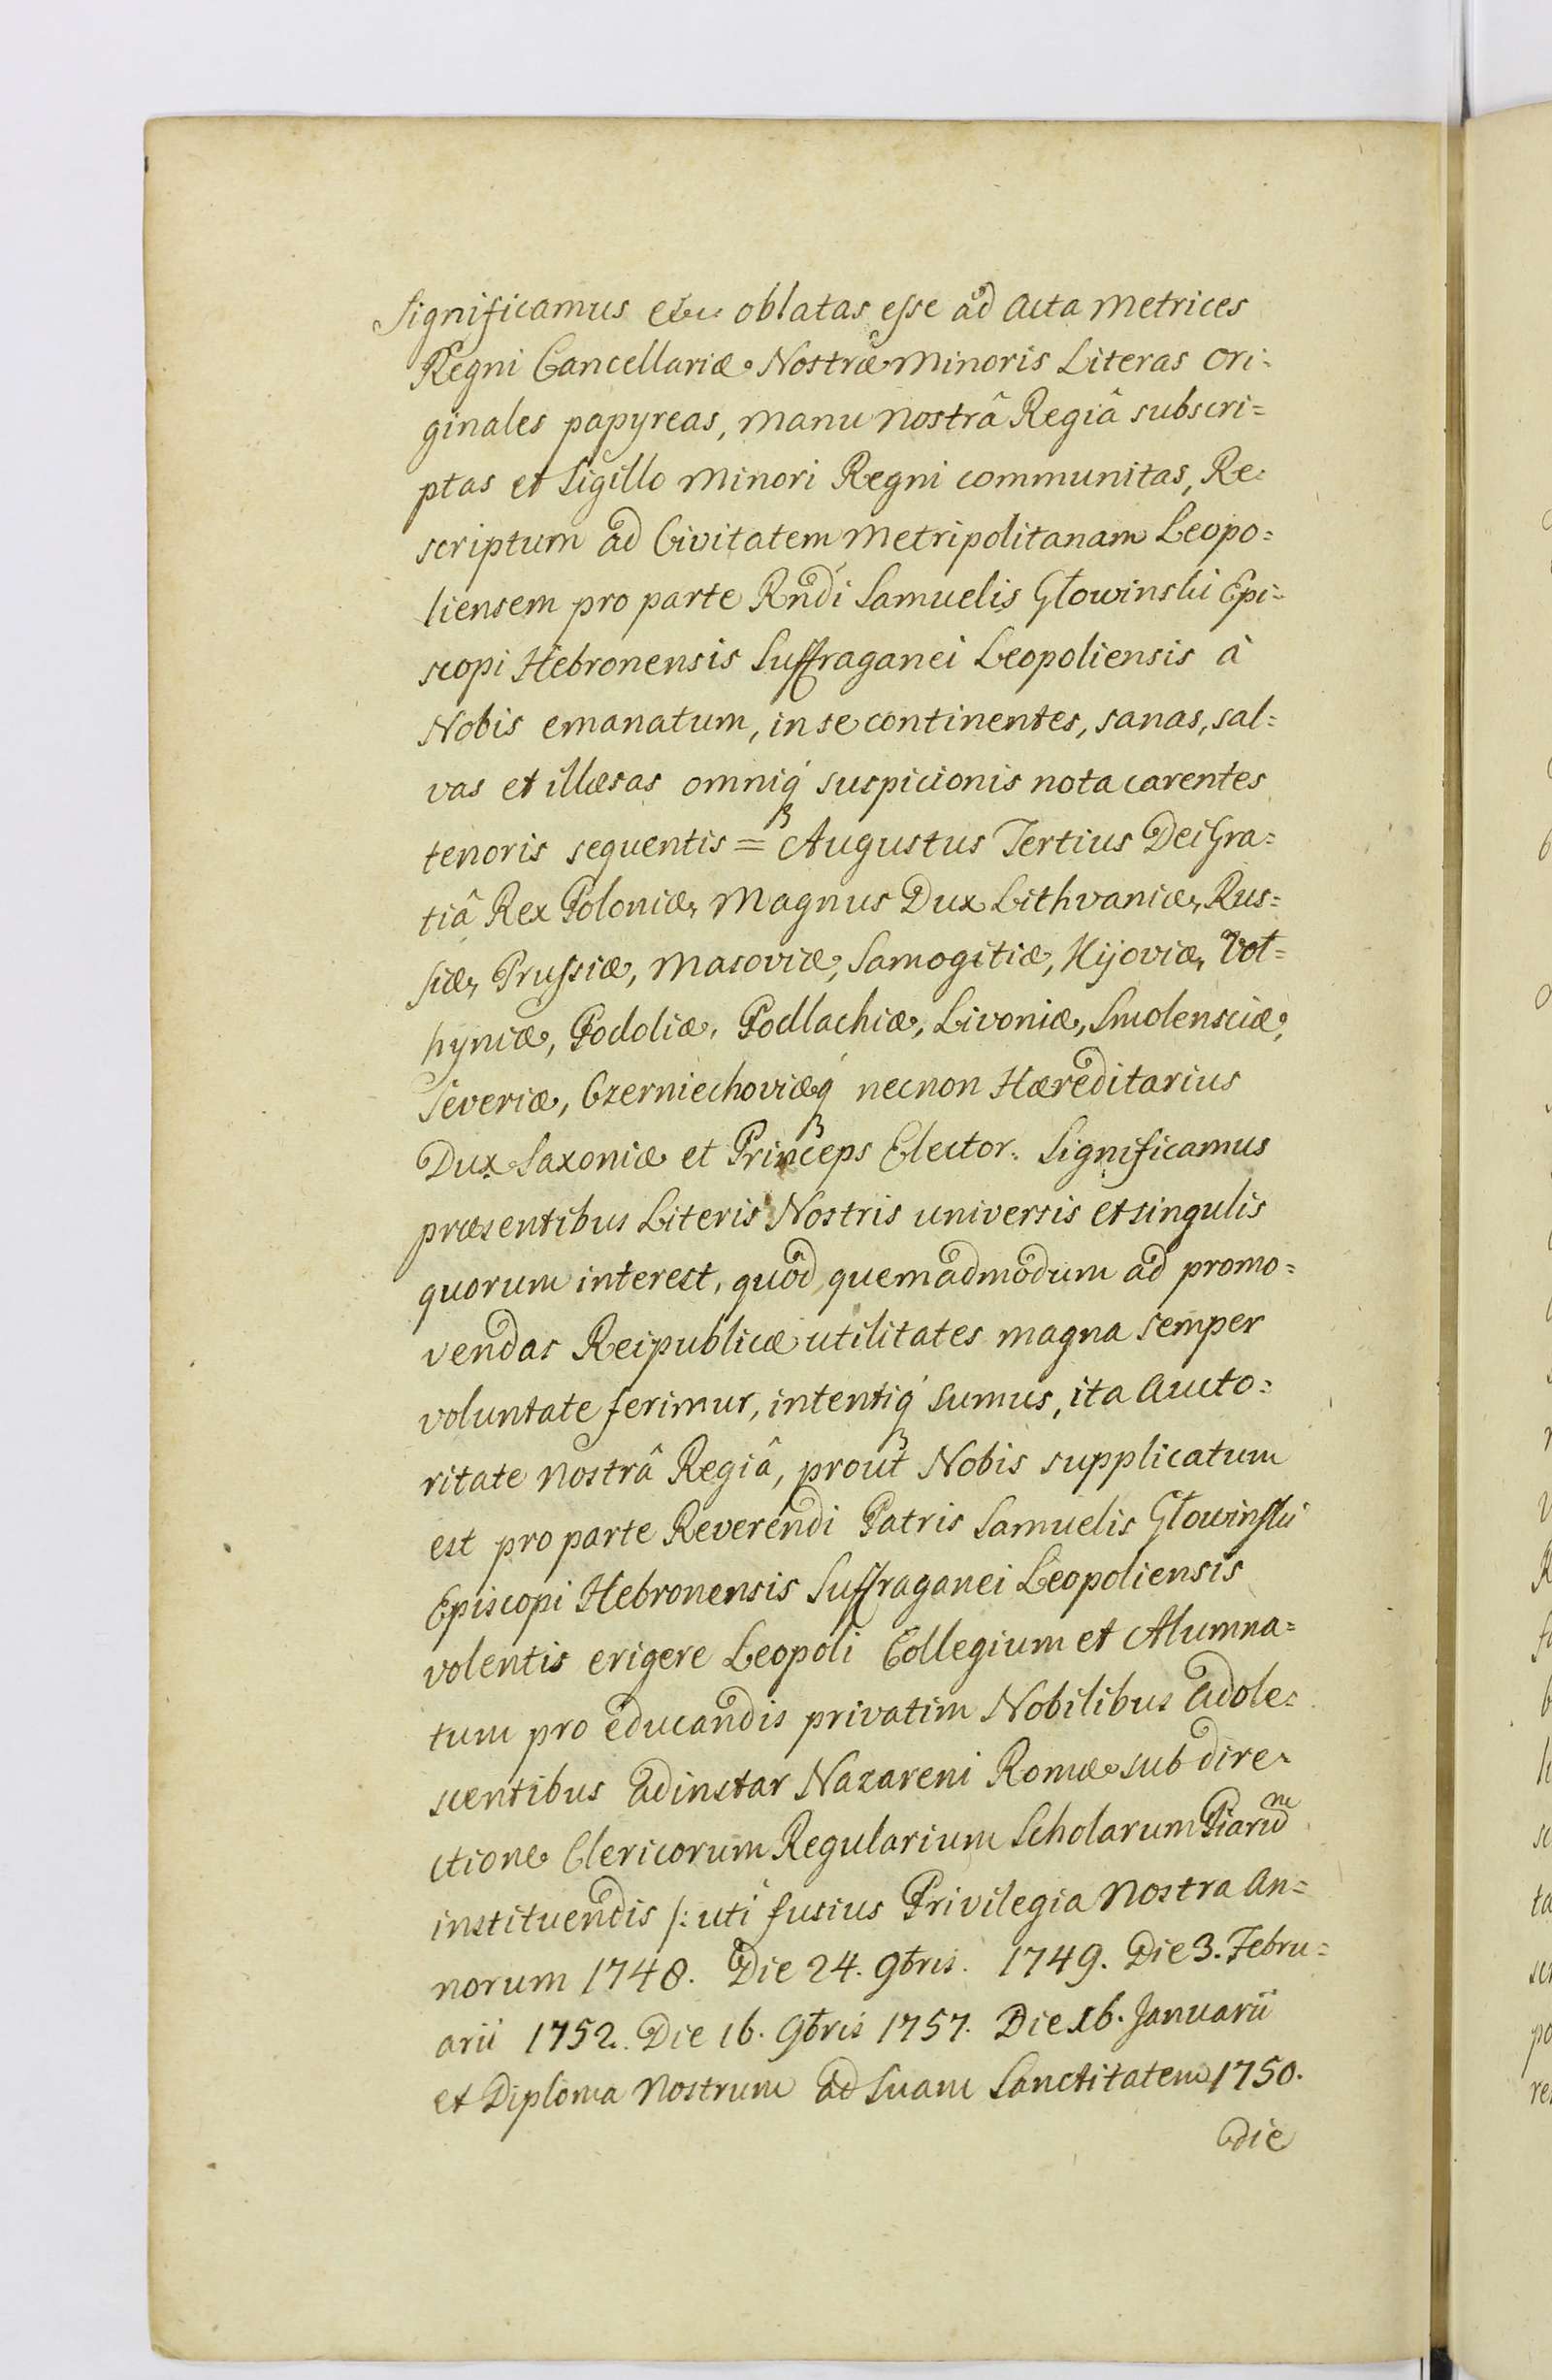 Significamus etc. oblatas esse ad Acta Metrices
Regni Cancellariæ Nostræ Minoris Literas Ori=
ginales papyreas, manu Nostrâ Regiâ subscri=
ptas et Sigillo Minori Regni communitas, Re=
scriptum ad Civitatem Metripolitanam Leopo=
liensem pro parte Rndi Samuelis Głowinski Epi=
scopi Hebronensis Suffraganei Leopoliensis à
Nobis emanatum, in se continentes, sanas, sal=
vas et illæsas omniq́ suspicionis nota carentes
tenoris sequentis = Augustus Tertius Dei Gra=
tiâ Rex Poloniæ, Magnus Dux Lithvaniæ, Rus=
siæ, Prussiæ, Masoviæ, Samogitiæ, Kijoviæ, Vol=
hyniæ, Podoliæ, Podlachiæ, Livoniæ, Smolensciæ,
Severiæ, Czerniechoviæq́ necnon Hæreditarius
Dux Saxoniæ et Princeps Elector. Significamus
præsentibus Literis Nostris universis et singulis
quorum interest, quod quemadmodum ad promo=
vendas Reipublicæ utilitates magna semper
voluntate ferimur, intentiq́ sumus, ita Aucto=
ritate Nostrâ Regiâ, prout Nobis supplicatum
est pro parte Reverendi Patris Samuelis Głowinski
Episcopi Hebronensis Suffraganei Leopoliensis
volentis erigere Leopoli Collegium et Alumna=
tum pro educandis privatim Nobilibus Adole=
scentibus adinstar Nazareni Romæ sub dire=
ctione Clericorum Regularium Scholarum Piarum
instituendis /: uti fusius Privilegia Nostra An=
norum 1748. Die 24. 9bris. 1749. Die 3. Febru=
arii 1752. Die 16. 9bris 1757. Die 16. Januarii
et Diploma Nostrum ad Suam Sanctitatem 1750.
die